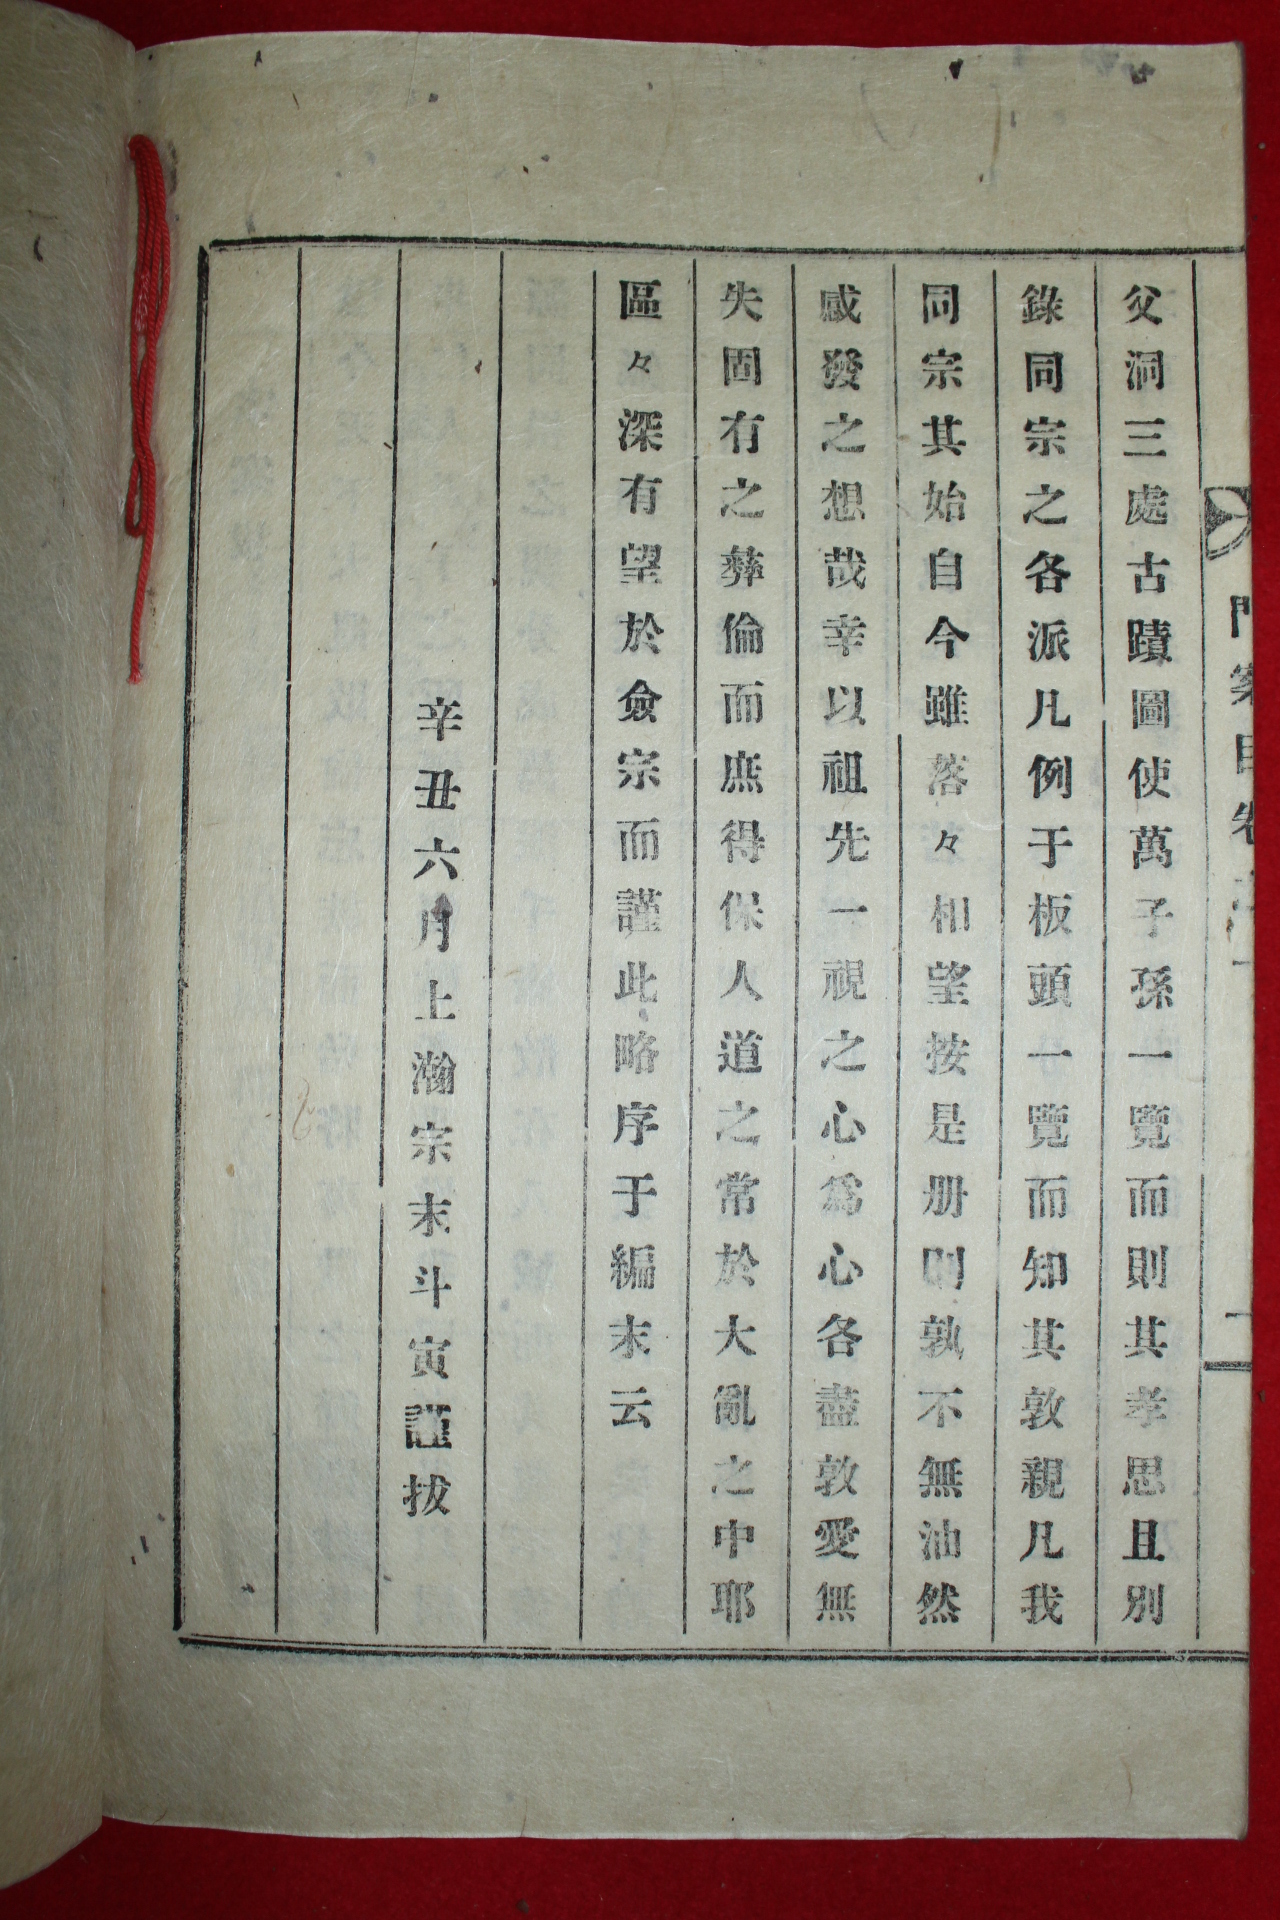 門案目卷
父洞三處古蹟圖使萬子孫一覽而則其孝思且別
錄同宗之各派凡例于板頭一覽而知其敦親凡我
同宗其始自今雖落々相望按是册則孰不無油然
感發之想哉幸以祖先一視之心爲心各盡敦愛無
失固有之彝倫而庶得保人道之常於大亂之中耶
區々深有望於僉宗而謹此略序于編末云
辛丑六月上瀚宗末斗寅謹拔